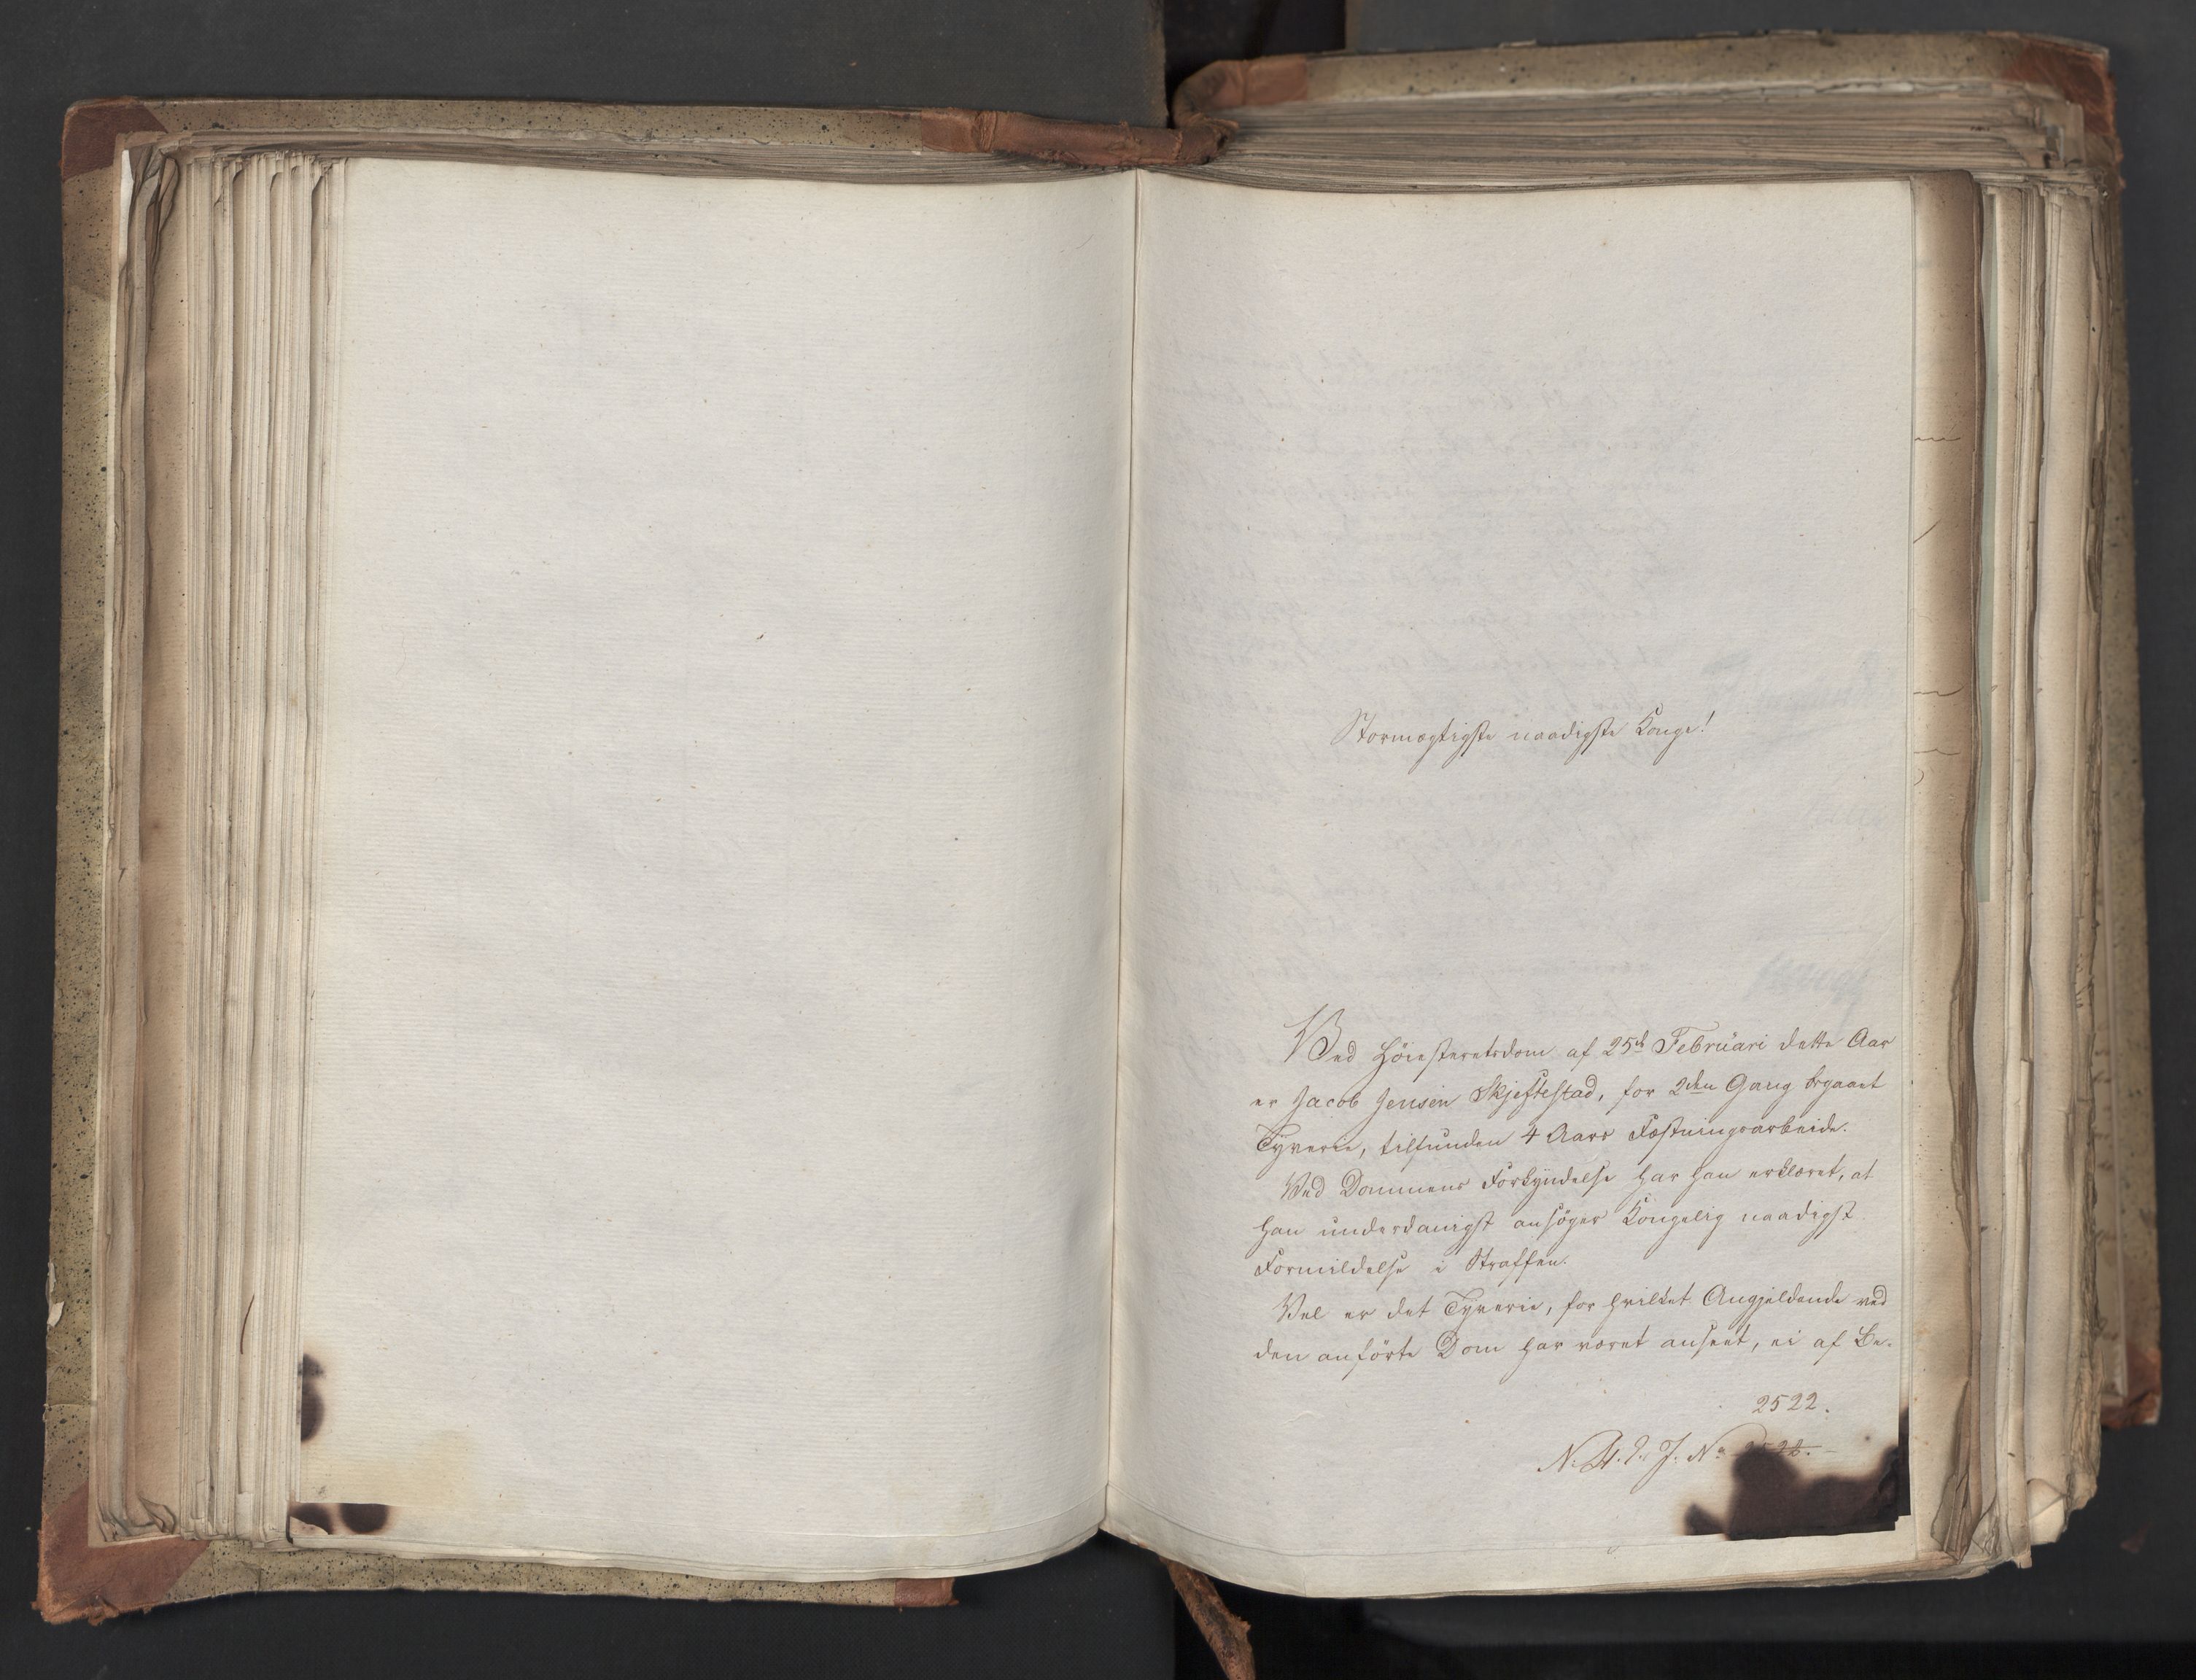 Stormægtigste naadigste Konge!
Ved Höiesteretsdom af 25de Februari dette Aar
er Jacob Jensen Skjeftestad, for 2den Gang begaaet
Tyverie, tilfunden 4 Aars Fæstningsarbeide.
Ved Dommens Forkyndelse har han erklæret, at
han underdanigst ansöger Kongelig naadigst
Formildelse i Straffen.
Vel er det Tyverie, for hvilket Angjeldende ved
den anförte Dom har været anseet, ei af Be-
2522.
N. A. E. J. No